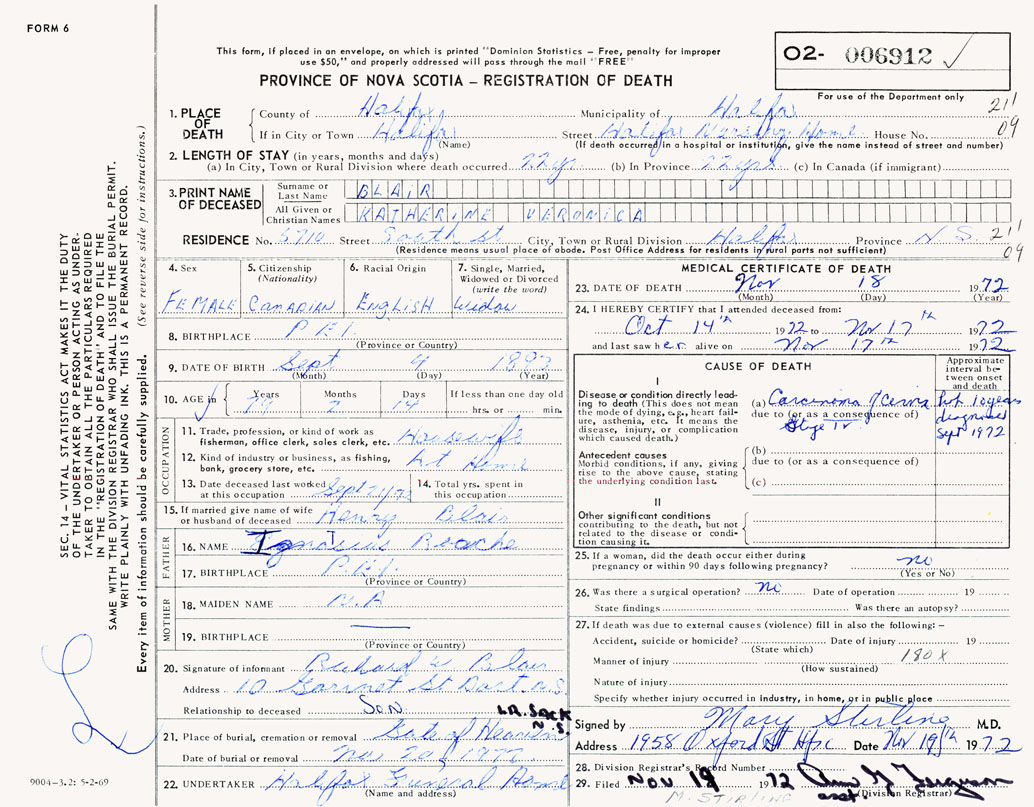 FORM 6
This form, if placed in an envelope, on which is printed "Dominion Statistics – Free, penalty for improper
use $50," and properly addressed will pass through the mail "FREE"
PROVINCE OF NOVA SCOTIA – REGISTRATION OF DEATH
O2- 006912
For use of the Department only
211
09
1. PLACE OF DEATH
County of Halifax Municipality of Halifax
If in City or Town Halifax Street Halifax Nursing Home House No.
(Name) (If death occurred in a hospital or institution, give the name instead of street and number)
2. LENGTH OF STAY (in years, months and days)
(a) In City, Town or Rural Division where death occurred 22 y. (b) In Province 22 yrs. (c) In Canada (if immigrant)
3. PRINT NAME OF DECEASED
Surname or Last Name BLAIR
All Given or Christian Names KATHERINE VERONICA
RESIDENCE No. 5710 Street South St City, Town or Rural Division Halifax Province N S 211
(Residence means usual place of abode. Post Office Address for residents in rural parts not sufficient) 09
4. Sex
FEMALE
5. Citizenship
(Nationality)
CANADIAN
6. Racial Origin
ENGLISH
7. Single, Married,
Widowed or Divorced
(write the word)
Widow
8. BIRTHPLACE P.E.I.
(Province or Country)
9. DATE OF BIRTH Sept 4 1893
(Month) (Day) (Year)
10. AGE in Years 79 Months 2 Days 14 If less than one day old
hrs. or min.
OCCUPATION
11. Trade, profession or kind of work as
fisherman, office clerk, sales clerk, etc. Housewife
12. Kind of industry or business, as fishing,
bank, grocery store, etc. At Home
13. Date deceased last worked
at this occupation Sept 21/72
14. Total yrs. spent in
this occupation
15. If married give name of wife
or husband of deceased Henry Blair
FATHER
16. NAME Ignatius Roache
17. BIRTHPLACE P.E.I.
(Province or Country)
MOTHER
18. MAIDEN NAME N.A
19. BIRTHPLACE
(Province or Country)
20. Signature of informant Richard Blair
Address 10 St Dart. N.S.
Relationship to deceased Son
LR. SACK
N.S.
21. Place of burial, cremation or removal Gate of Heaven
Date of burial or removal Nov 20, 1972
22. UNDERTAKER Halifax Funeral Home
(Name and address)
MEDICAL CERTIFICATE OF DEATH
23. DATE OF DEATH Nov 18 1972
(Month) (Day) (Year)
24. I HEREBY CERTIFY that I attended deceased from:
Oct 14th 1972 to Nov 17th 1972
and last saw her alive on Nov 17th 1972
CAUSE OF DEATH
Approximate
interval be-
tween onset
and death
I
Disease or condition directly lead-
ing to death (This does not mean
the mode of dying, e.g., heart fail-
ure, asthenia, etc. It means the
disease, injury, or complication
which caused death.)
(a) Carcinoma
due to (or as a consequence of)
Stage IV
10 years
diagnosed
Sept 1972
Antecedent causes
Morbid conditions, if any, giving
rise to the above cause, stating
the underlying condition last.
(b)
due to (or as a consequence of)
(c)
II
Other significant conditions
contributing to the death, but not
related to the disease or condi-
tion causing it.
25. If a woman, did the death occur either during
pregnancy or within 90 days following pregnancy? no
(Yes or No)
26. Was there a surgical operation? no Date of operation 19
State findings Was there an autopsy?
27. If death was due to external causes (violence) fill in also the following: –
Accident, suicide or homicide? Date of injury 19
(State which)
Manner of injury 180X
(How sustained)
Nature of injury
Specify whether injury occurred in industry, in home, or in public place
Signed by Mary Stirling M.D.
Address 1958 Oxford St Hfx Date Nov 19th 1972
28. Division Registrar's Record Number
29. Filed NOV 19 1972 Ferguson
asst. (Division Registrar)
M. STIRLING
SEC. 14 – VITAL STATISTICS ACT MAKES IT THE DUTY
OF THE UNDERTAKER OR PERSON ACTING AS UNDER-
TAKER TO OBTAIN ALL THE PARTICULARS REQUIRED
IN THE "REGISTRATION OF DEATH" AND TO FILE THE
SAME WITH THE DIVISION REGISTRAR WHO SHALL ISSUE THE BURIAL PERMIT.
WRITE PLAINLY WITH UNFADING INK. THIS IS A PERMANENT RECORD.
Every item of information should be carefully supplied. (See reverse side for instructions.)
9004-3.2: 5-2-69